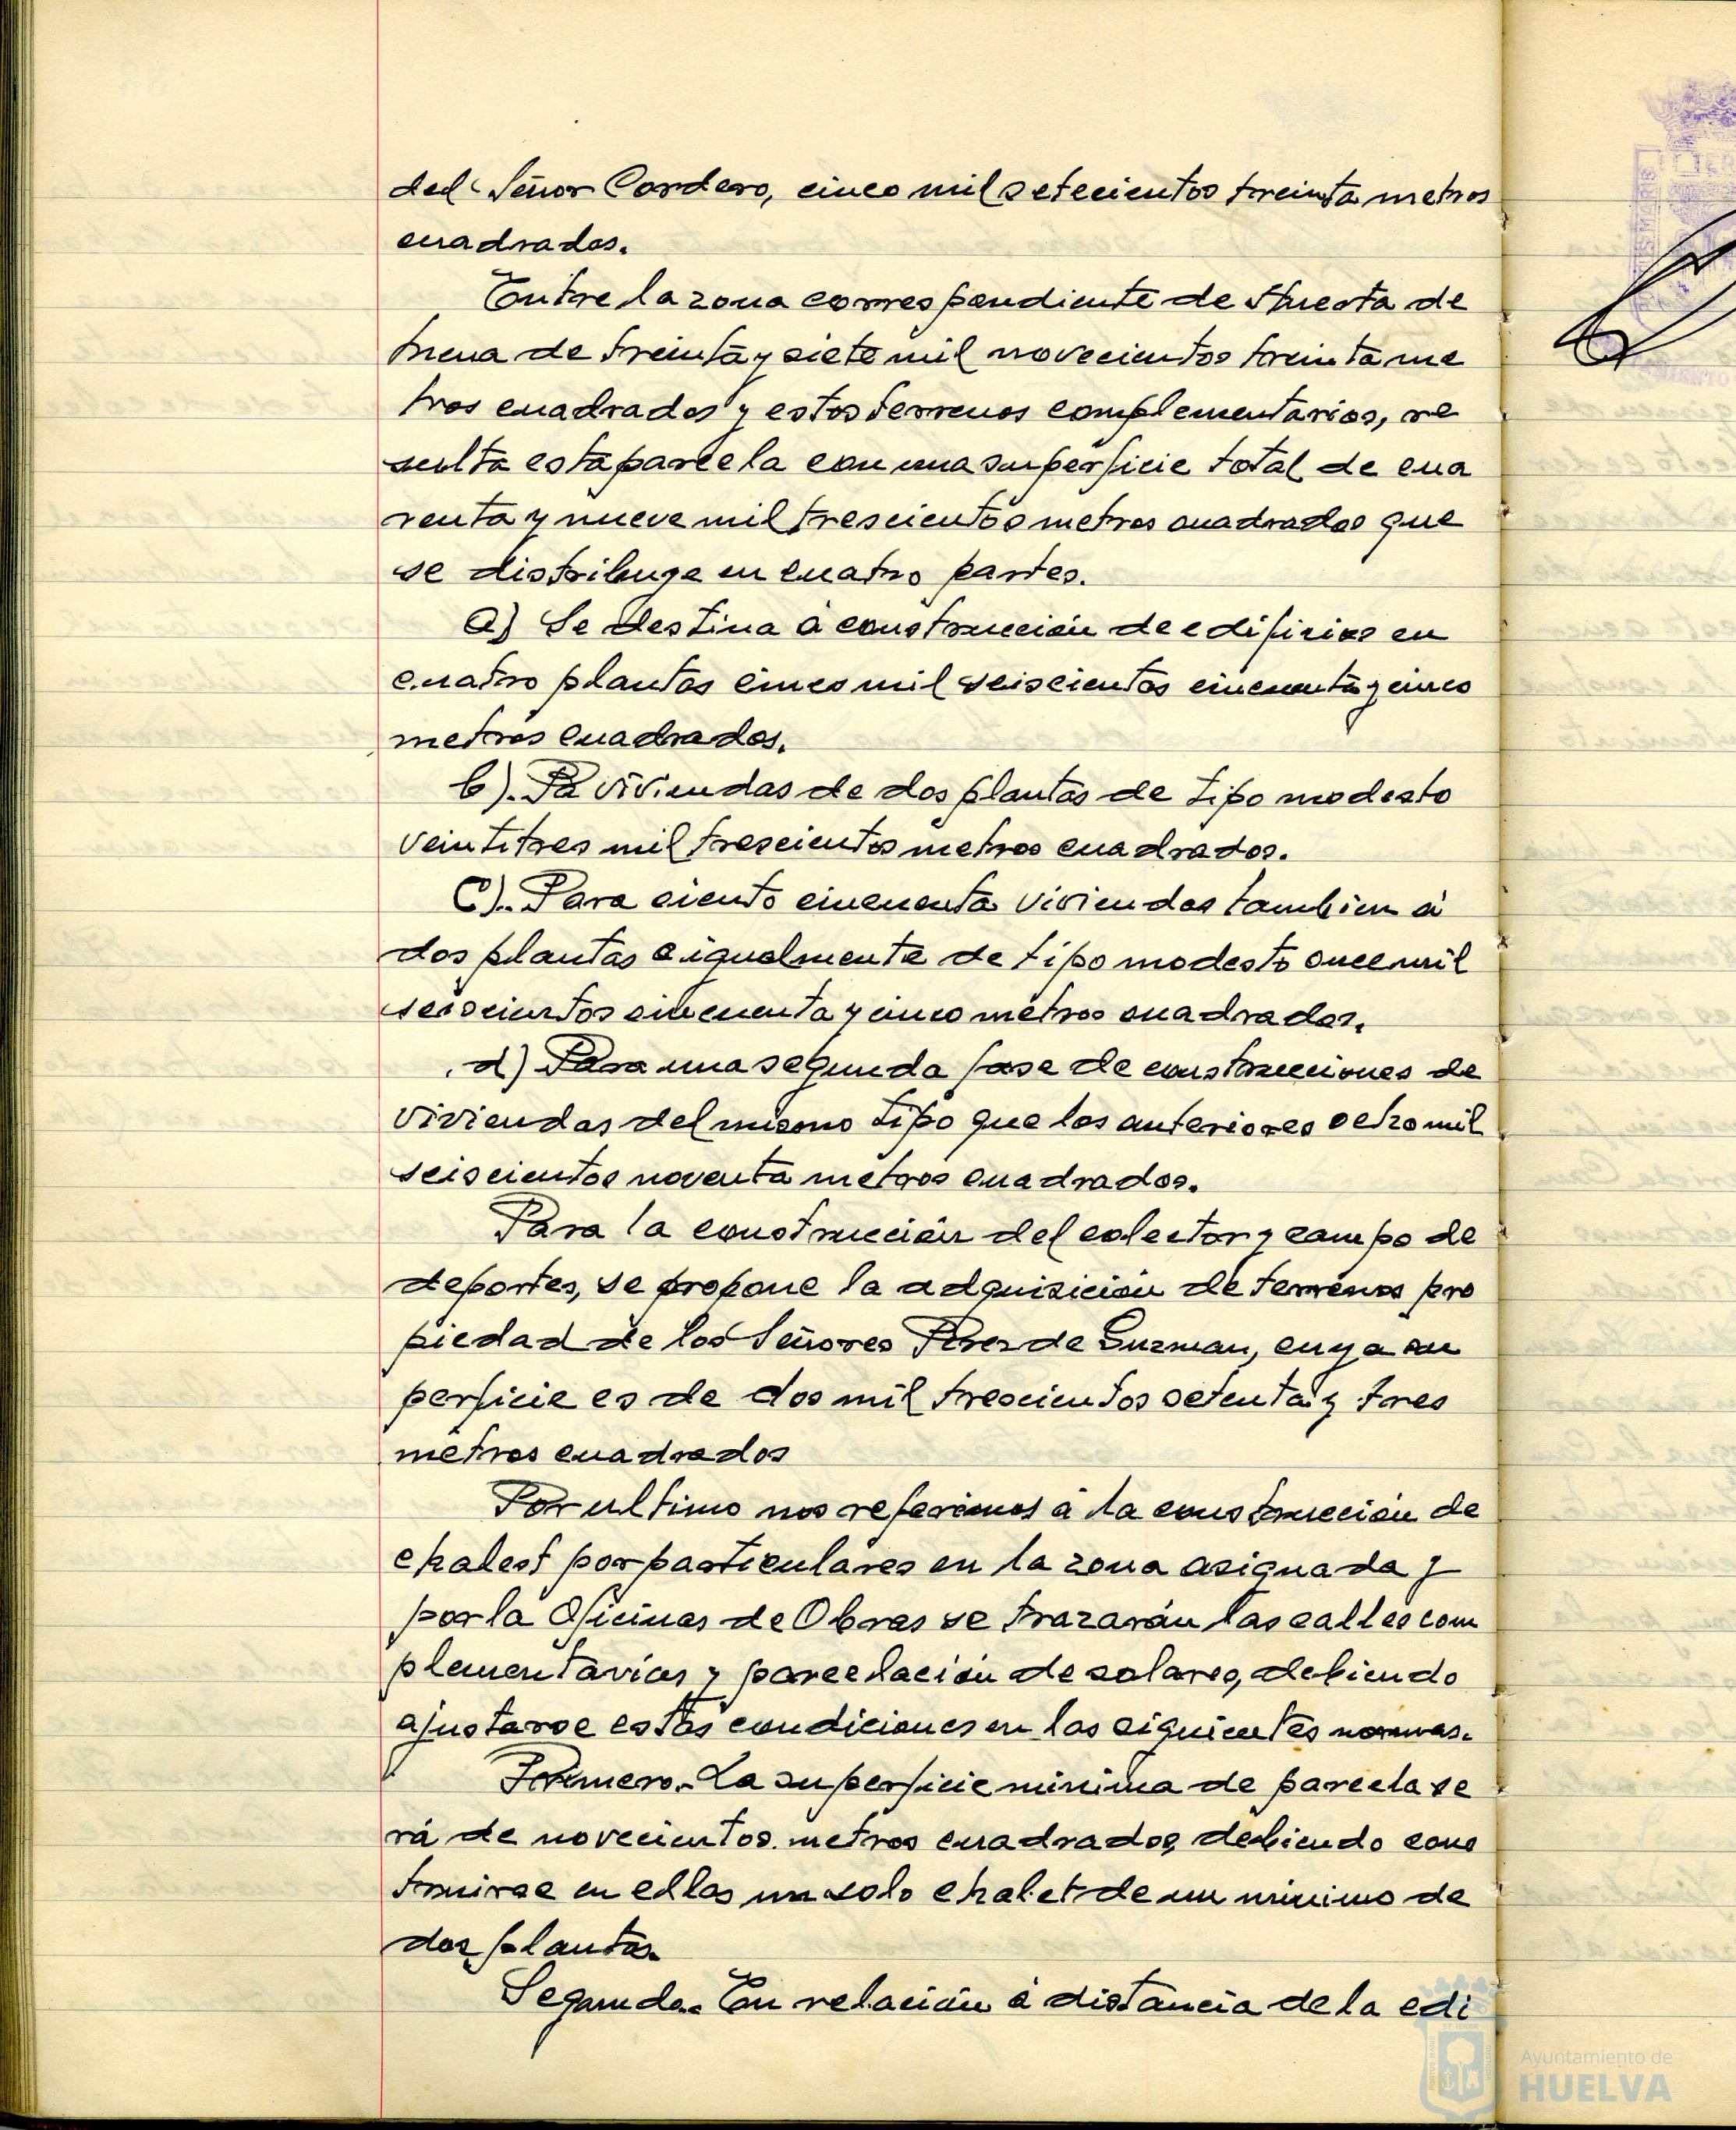 del Señor Cordero, cinco mil setecientos treinta metros
cuadrados.
Entre la zona correspondiente de Huerta de
Mena de treinta y siete mil novecientos treinta me
tros cuadrados y estos terrenos complementarios, re
sulta esta parcela con una superficie total de cua
renta y nueve mil trescientos metros cuadrados que
se distribuye en cuatro partes.
a) Se destina á construcción de edificios en
cuatro plantas cinco mil seiscientos cincuenta y cinco
metros cuadrados.
b). Pª viviendas de dos plantas de tipo modesto
veintitres mil trescientos metros cuadrados.
C). Para ciento cincuenta viviendas tambien á
dos plantas e igualmente de tipo modesto once mil
seiscientos cincuenta y cinco metros cuadrados.
d) Para una segunda fase de construcciones de
viviendas del mismo tipo que las anteriores ocho mil
seiscientos noventa metros cuadrados.
Para la construcción del colector y campo de
deportes, se propone la adquisición de terrenos pro
piedad de los Señores Perez de Guzman, cuya su
perficie es de dos mil trescientos setenta y tres
metros cuadrados
Por ultimo nos referimos á la construcción de
chalest por particulares en la zona asignada y
por la Oficinas de Obras se trazarán las calles com
plementarias y parcelación de solares, debiendo
ajustarse estas condiciones en las siguientes normas.
Primero.- La superficie minima de parcela se
rá de novecientos metros cuadrados, debiendo cons
truirse en ellas un solo chalet de un minimo de
dos plantas.
Segundo.- En relación á distancia de la edi
Ayuntamiento de
HUELVA